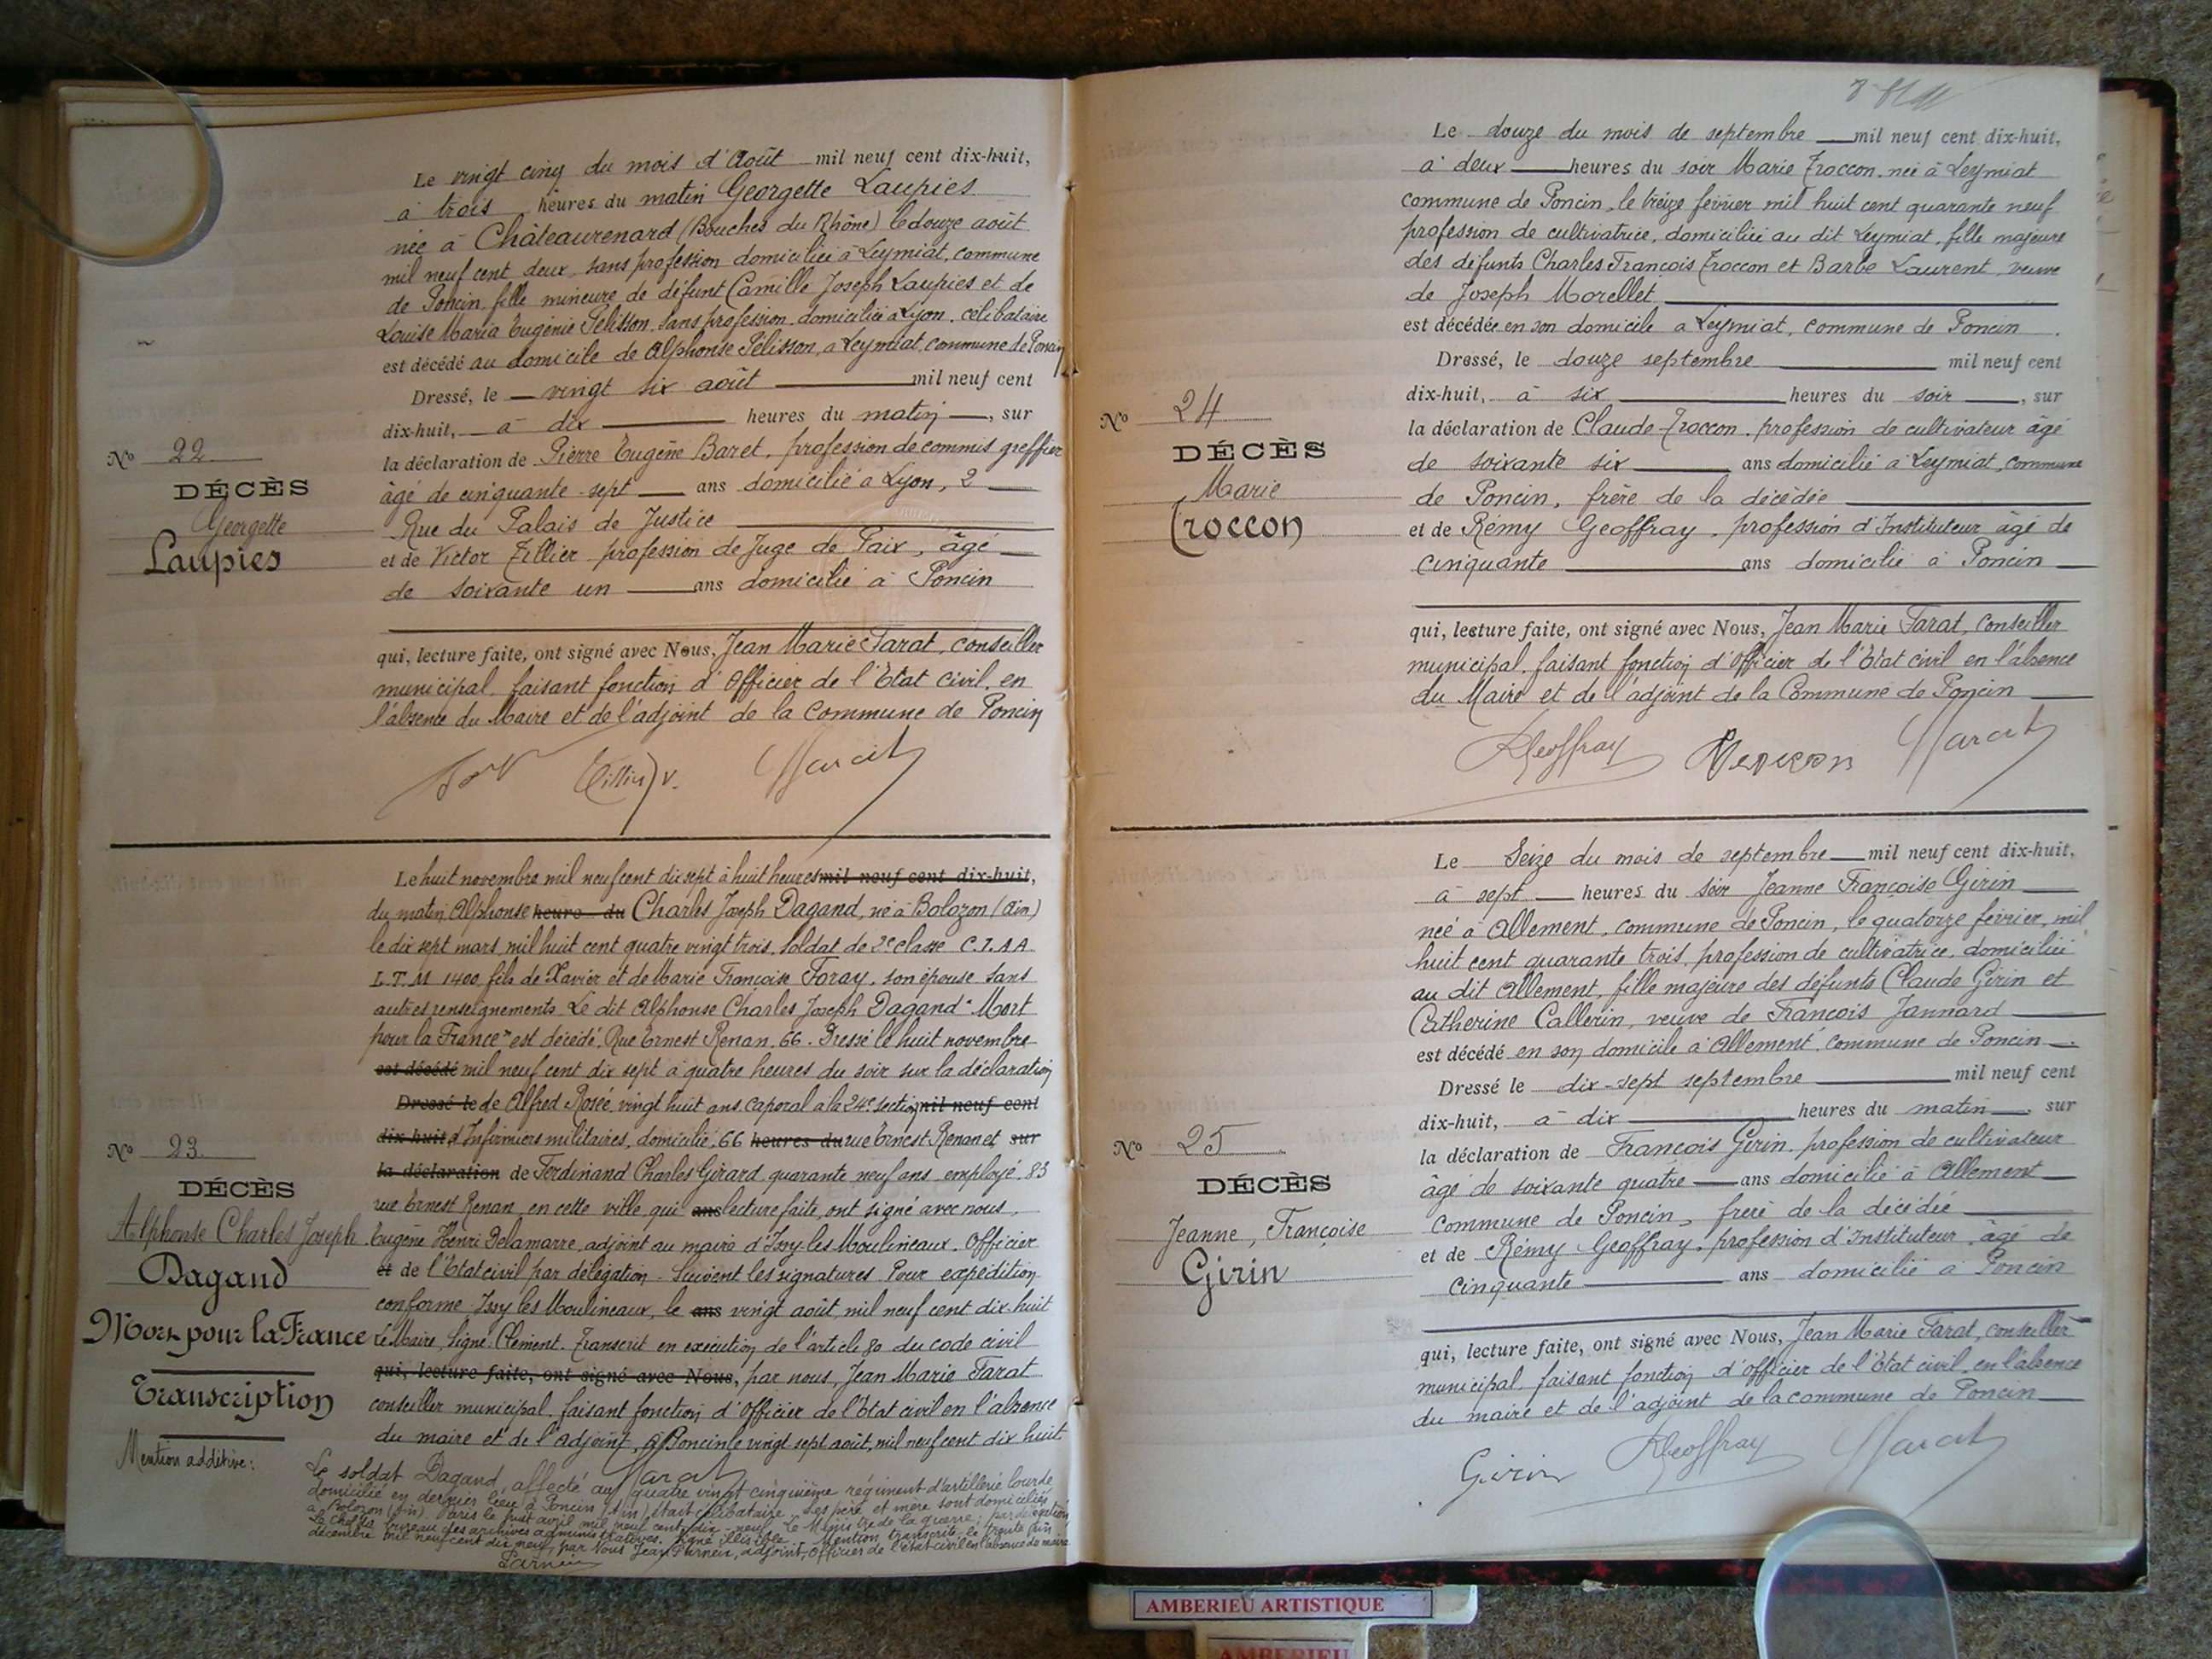 Le vingt cinq du mois d'Août mil neuf cent dix-huit,
à trois heures du matin Georgette Laupies
née à Châteaurenard (Bouches du Rhône) le douze août
mil neuf cent deux, sans profession domiciliée à Leymiat, commune
de Poncin, fille mineure de défunt Camille Joseph Laupies et de
Louise Maria Eugénie Pélisson, sans profession, domiciliée à Lyon. célibataire
est décédé au domicile de Alphonse Pélisson, à Leymiat, commune de Poncin
Dressé, le vingt six août mil neuf cent
dix-huit, à dix heures du matin, sur
la déclaration de Pierre Eugène Baret, profession de commis greffier
âgé de cinquante-sept ans domicilié à Lyon, 2
Rue du Palais de Justice
et de Victor Tillier, profession de Juge de Paix, âgé
de soixante un ans domicilié à Poncin
qui, lecture faite, ont signé avec Nous, Jean Marie Farat, conseiller
municipal, faisant fonction d'Officier de l'Etat civil, en
l'absence du Maire et de l'adjoint de la Commune de Poncin
Tillier V. Farat
No 22
DÉCÈS
Georgette
Laupies
Le huit novembre mil neuf cent dix sept à huit heures mil neuf cent dix-huit,
du matin Alphonse heure du Charles Joseph Dagand, né à Bolozon (Ain)
le dix sept mars, mil huit cent quatre vingt trois, soldat de 2e classe C.I.A.A
L.T.M 1400, fils de Xavier et de Marie Françoise Foray, son épouse sans
autres renseignements. Le dit Alphonse Charles Joseph Dagand "Mort
pour la France" est décédé, Rue Ernest Renan, 66. Dressé le huit novembre
est décédé mil neuf cent dix sept à quatre heures du soir sur la déclaration
Dressé le de Alfred Rosée, vingt huit ans, caporal à la 24e section mil neuf cent
dix-huit d'Infirmiers militaires, domicilié, 66 heures du rue Ernest Renan et sur
la déclaration de Ferdinand Charles Girard, quarante neuf ans, employé, 83
rue Ernest Renan, en cette ville, qui ans lecture faite, ont signé avec nous,
Eugène Henri Delamarre, adjoint au maire d'Issy-les-Moulineaux, Officier
et de l'Etat civil par délégation. Suivent les signatures. Pour expédition
conforme Issy les Moulineaux, le ans vingt août, mil neuf cent dix-huit
Le Maire, Signé: Clément. Transcrit en exécution de l'article 80 du code civil
qui, lecture faite, ont signé avec Nous, par nous, Jean Marie Farat
conseiller municipal, faisant fonction d'Officier de l'Etat civil en l'absence
du maire et de l'Adjoint, à Poncin le vingt sept août, mil neuf cent dix huit
Farat
No 23
DÉCÈS
Alphonse Charles Joseph
Dagand
Mort pour la France
Transcription
Mention additive:
Le soldat Dagand, affecté au quatre vingt cinquième régiment d'artillerie lourde
domicilié en dernier lieu à Poncin (Ain), était célibataire. Ses père et mère sont domiciliés
à Bolozon (Ain). Paris le huit avril mil neuf cent dix-neuf. Le Ministre de la guerre; par délégation
Le chef du bureau des archives administratives. Signé illisible. Mention transcrite le trente un
décembre mil neuf cent dix neuf, par Nous Jean Parnein, adjoint, Officier de l'état civil en l'absence du maire
Parnein
Le douze du mois de septembre mil neuf cent dix-huit,
à deux heures du soir Marie Troccon, née à Leymiat
commune de Poncin, le treize février mil huit cent quarante neuf
profession de cultivatrice, domiciliée au dit Leymiat, fille majeure
des défunts Charles François Troccon et Barbe Laurent, veuve
de Joseph Morellet
est décédée en son domicile à Leymiat, commune de Poncin.
Dressé, le douze septembre mil neuf cent
dix-huit, à six heures du soir, sur
la déclaration de Claude Troccon, profession de cultivateur âgé
de soixante six ans domicilié à Leymiat, commune
de Poncin, frère de la décédée
et de Rémy Geoffray, profession d'Instituteur âgé de
cinquante ans domicilié à Poncin
qui, lecture faite, ont signé avec Nous, Jean Marie Farat, conseiller
municipal, faisant fonction d'Officier de l'Etat civil en l'absence
du Maire et de l'adjoint de la Commune de Poncin
RGeoffray Farat
No 24
DÉCÈS
Marie
Troccon
Le Seize du mois de septembre mil neuf cent dix-huit,
à sept heures du soir Jeanne Françoise Girin
née à Allement, commune de Poncin, le quatorze février, mil
huit cent quarante trois, profession de cultivatrice, domiciliée
au dit Allement, fille majeure des défunts Claude Girin et
Catherine Callerin, veuve de François Jannard
est décédé en son domicile à Allement, commune de Poncin.
Dressé le dix-sept septembre mil neuf cent
dix-huit, à dix heures du matin, sur
la déclaration de François Girin, profession de cultivateur
âgé de soixante quatre ans domicilié à Allement
commune de Poncin, frère de la décédée
et de Rémy Geoffray, profession d'Instituteur, âgé de
cinquante ans domicilié à Poncin
qui, lecture faite, ont signé avec Nous, Jean Marie Farat, conseiller
municipal, faisant fonction d'officier de l'Etat civil, en l'absence
du maire et de l'adjoint de la commune de Poncin
Girin RGeoffray Farat
No 25
DÉCÈS
Jeanne, Françoise
Girin
AMBERIEU ARTISTIQUE
AMBERIEU